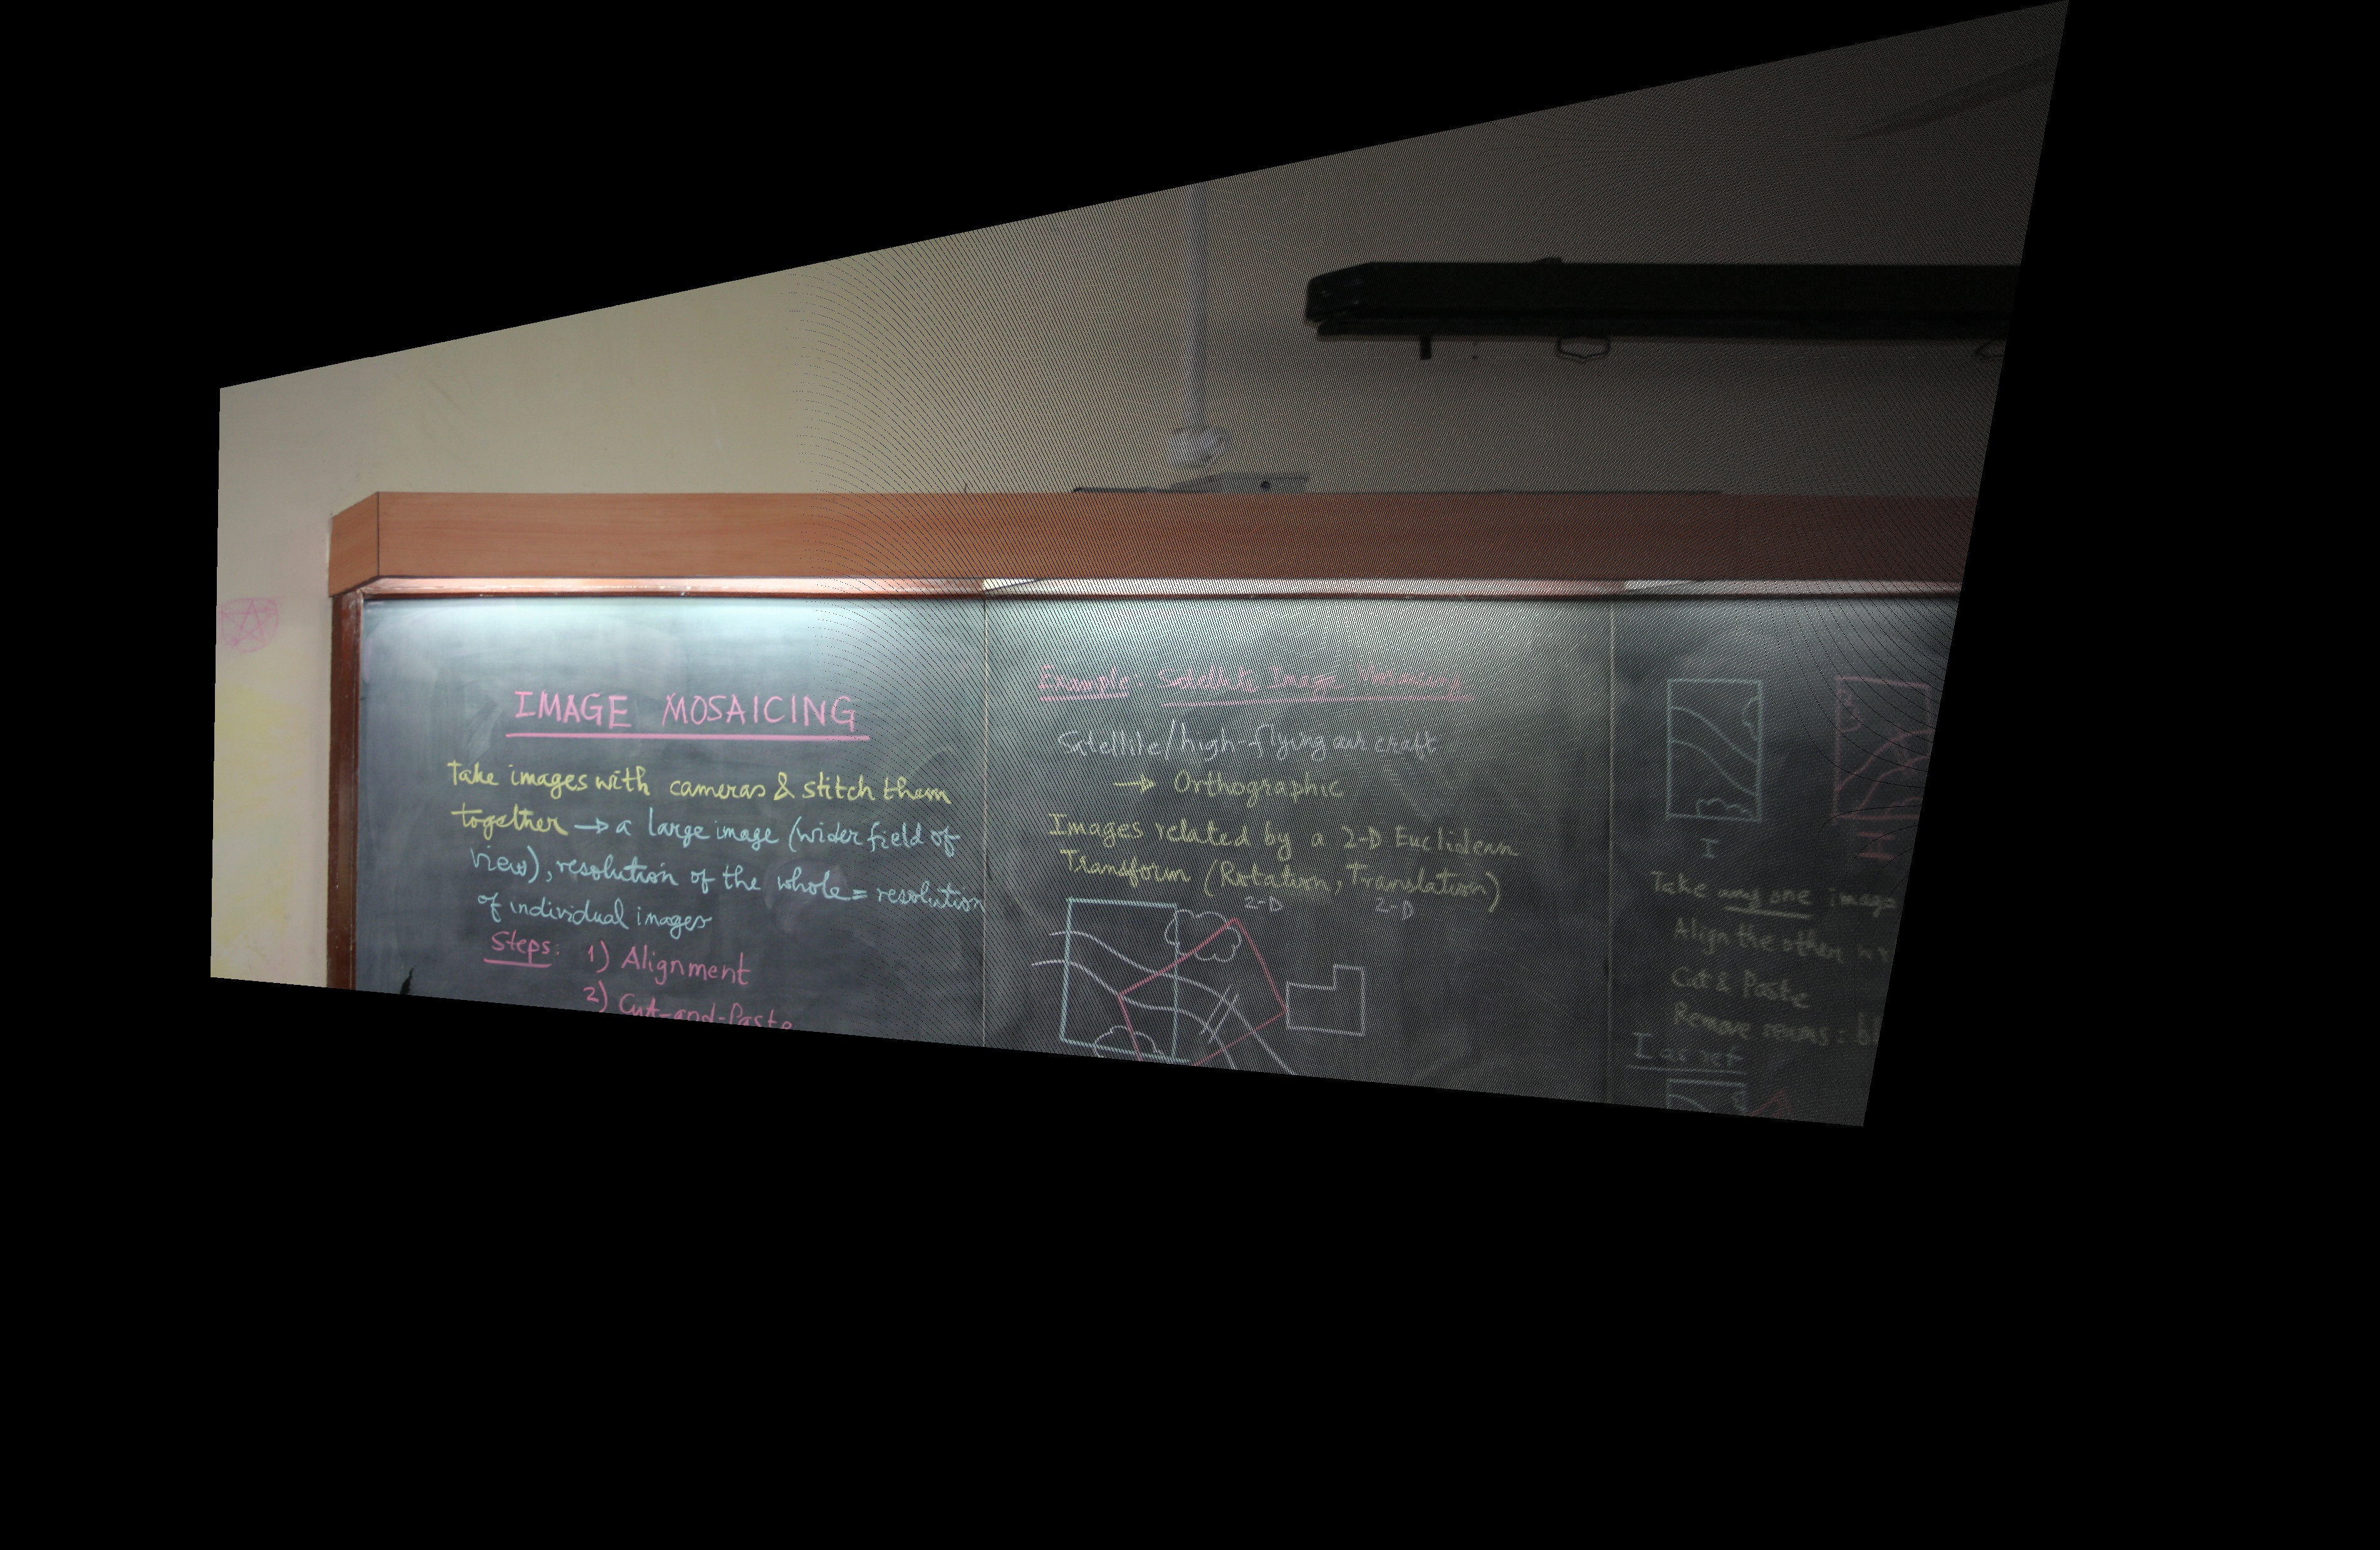 IMAGE MOSAICING
Take images with cameras & stitch them
together → a large image (wider field of
view), resolution of the whole = resolution
of individual images
Steps: 1) Alignment
2) Cut-and-Paste
Example: Satellite Image Mosaicing
Satellite/high-flying aircraft
→ Orthographic
Images related by a 2-D Euclidean
Transform (Rotation, Translation)
2-D 2-D
I
II
Take any one image
Align the other
Cut & Paste
Remove seams: bl
I as ref